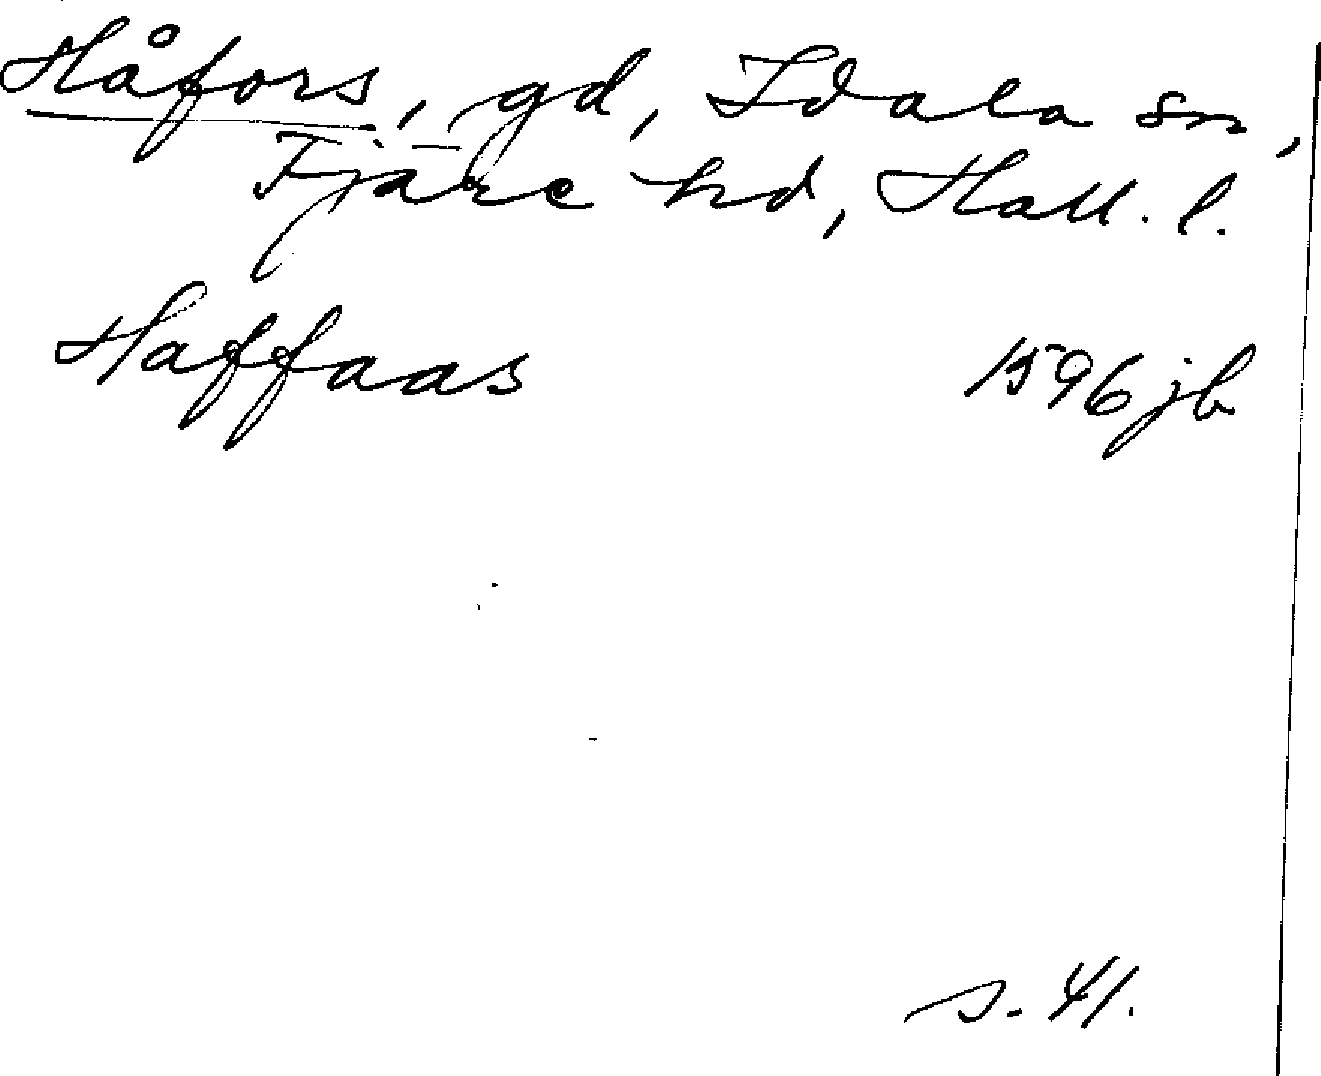 Håfors, gd, Idala sn,
Fjäre hd, Hall. l.
Haffaas 1596 jb
s. 41.